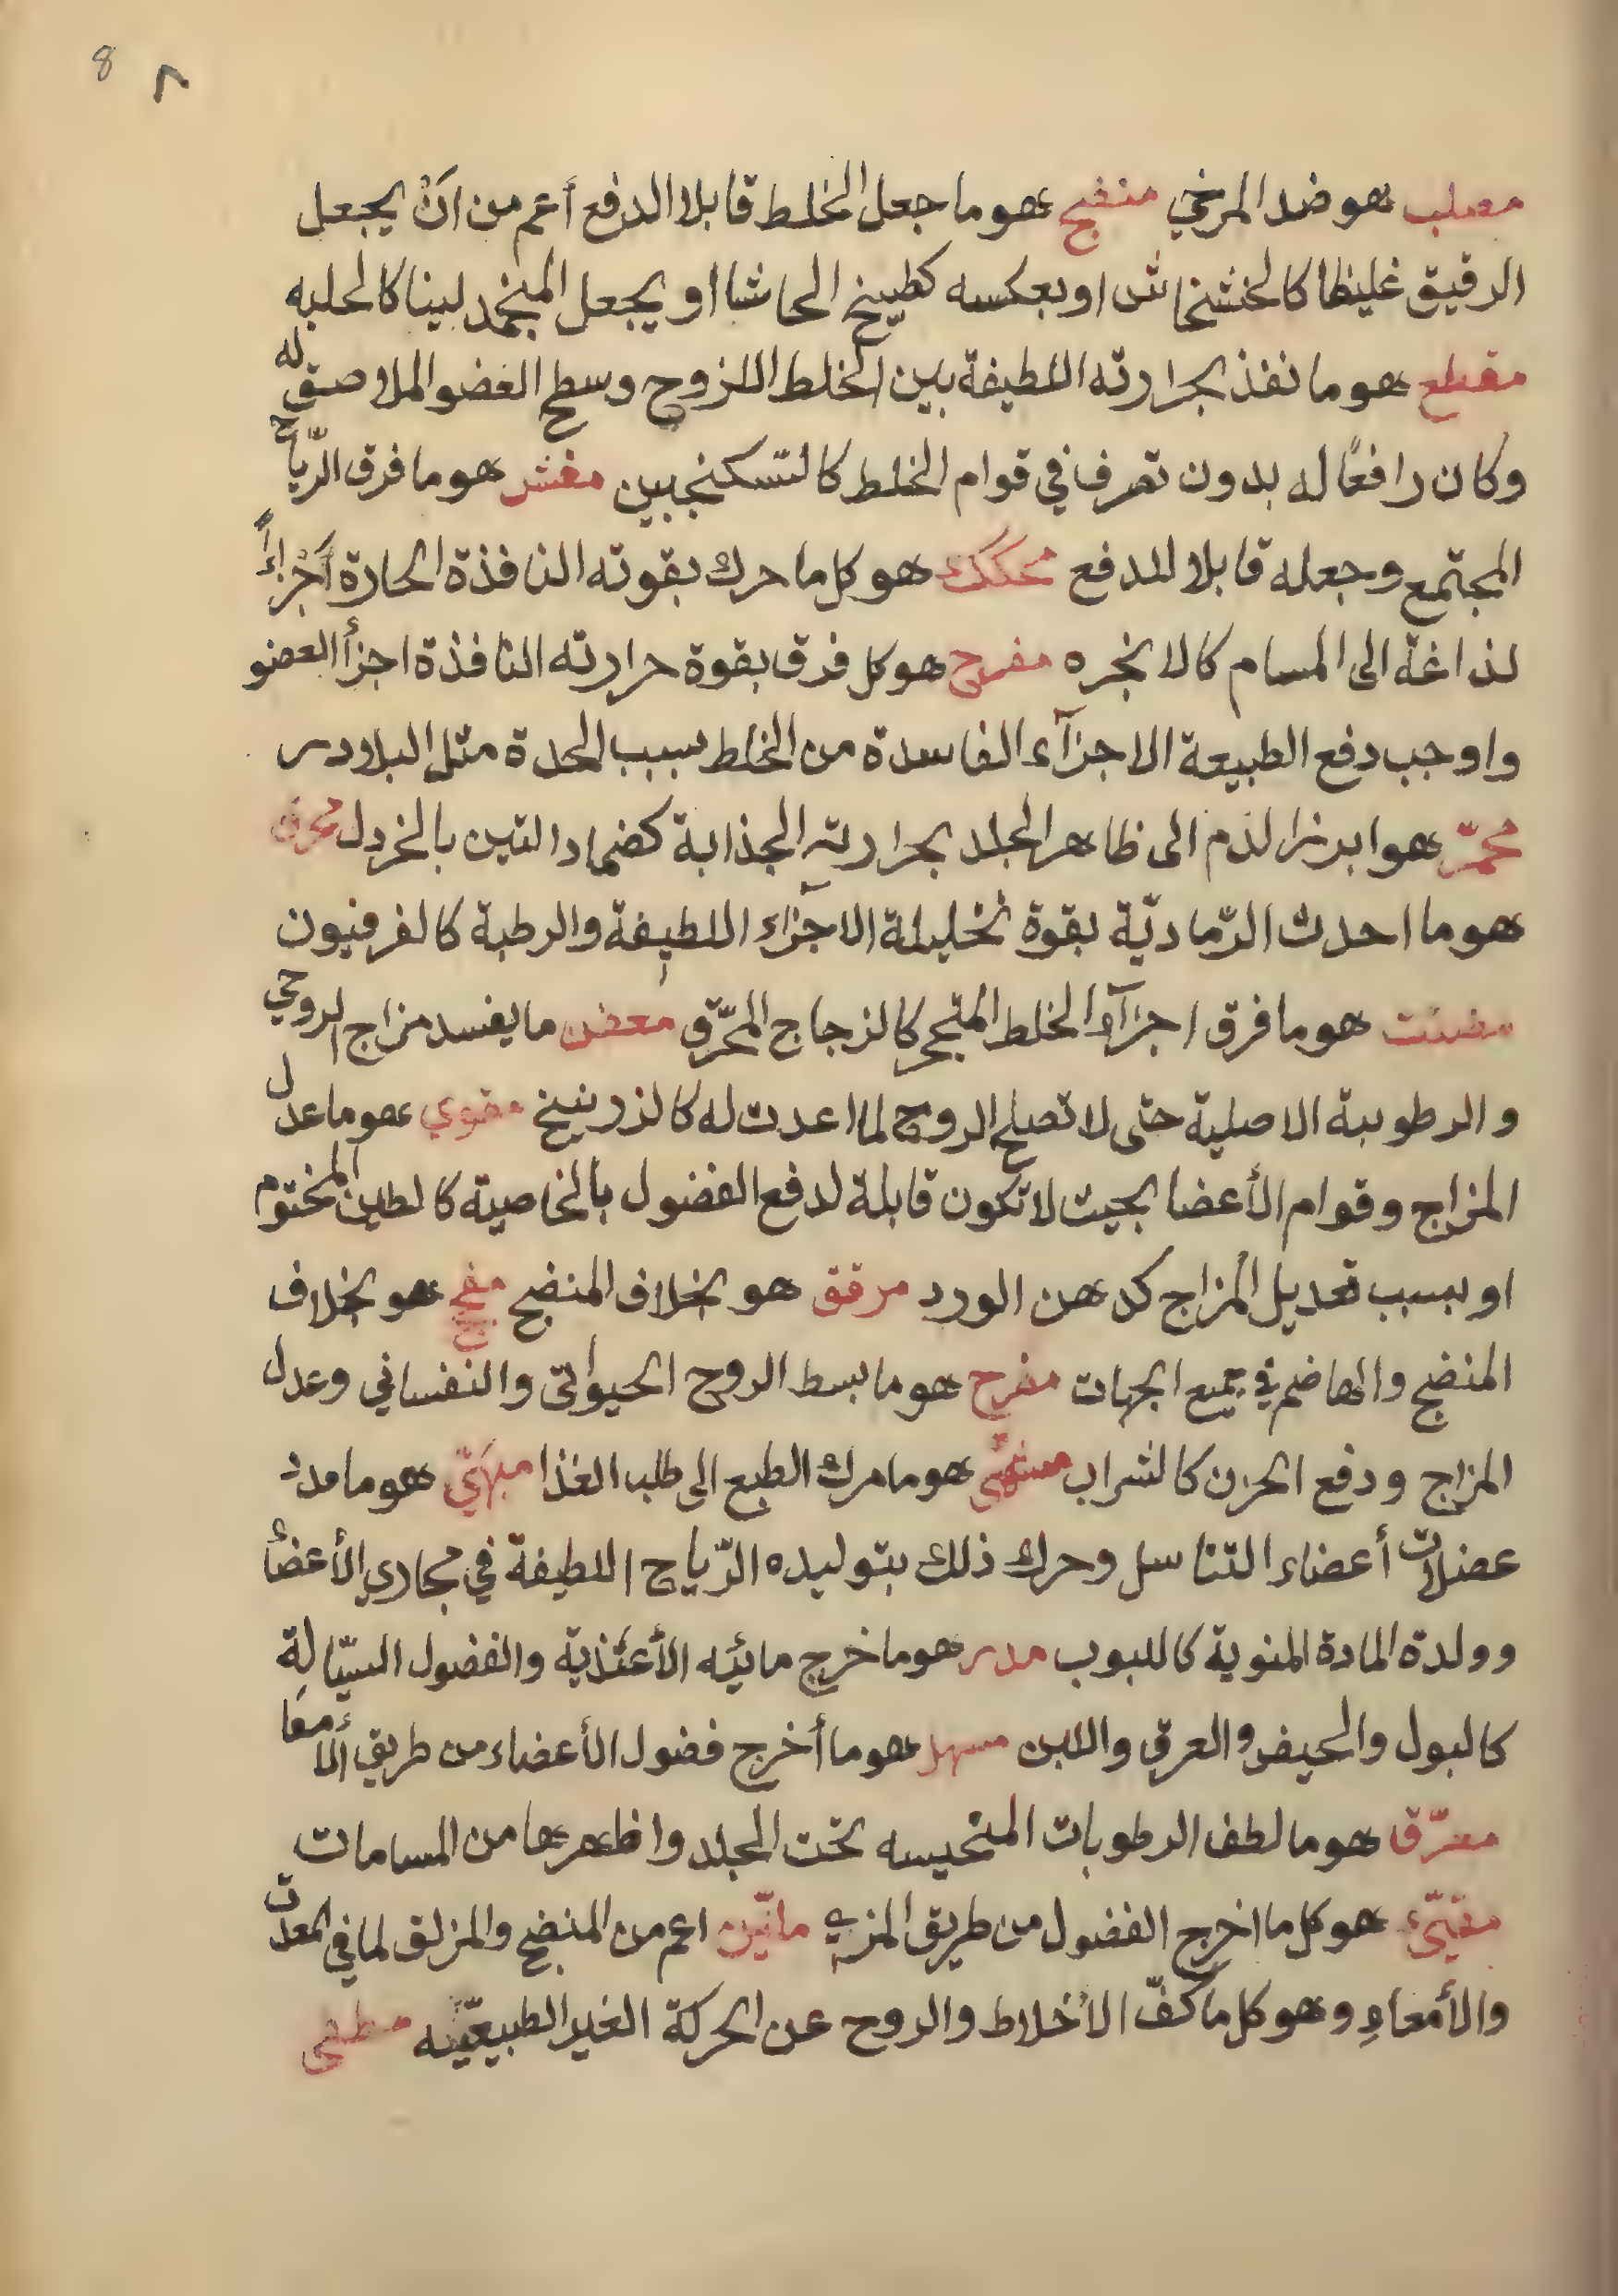 8 ٨
مصلب هو ضد المرخي منضج هو ما جعل الخلط قابلا الدفع أعم من انْ يجعل
الرقيق غليظا كالخشخاش او بعكسه كطبيخ الحاشا او يجعل المنجمد لينا كالحلبه
مقطع هو ما نفذ بحرارته اللطيفة بين الخلط اللزوج وسطح العضو الملاوصق له
وكان رافعًا له بدون تصرف في قوام الخلط كالسّكنجبين مفش هو ما فرق الرّياح
المجتمع وجعله قابلا للدفع محكك هو كل ما حرك بقوته النافذة الحارة أجْزاءً
لذاغة الى المسام كالانجره مفرح هو كل فرق بقوة حرارته النافذة اجزأ العضو
واوجب دفع الطبيعة الاجزآء الفاسدة من الخلط بسبب الحدة مثل البلادر
محمّر هو ابرز الدّم الى ظاهر الجلد بحرارتهِ الجذابة كضماد التين بالخردل محرق
هو ما احدث الرّماديّة بقوة تحليلة الاجزاء اللطيفة والرطبة كالفرفيون
مفتت هو ما فرق اجزآء الخلط المتحجر كالزجاج المحّرق معفن ما يفسد مزاج الروحي
والرطوبة الاصلية حتى لا تصلح الروح لما اعدت له كالزرنيخ مقوي هو ما عدل
المزاج وقوام الأعضا بحيث لا تكون قابلة لدفع الفضول بالخاصية كالطين المختوم
او بسبب تعديل المزاج كدهن الورد مرقق هو بخلاف المنضج مفجج هو بخلاف
المنضج والهاضم في جميع الجهات مفرح هو ما بسط الروح الحيواني والنفساني وعدل
المزاج ودفع الحزن كالشراب مشهّي هو ما حرك الطبع الى طلب الغذا مبهّي هو ما مدد
عضلات أعضاء التناسل وحرك ذلك بتوليده الرّياح اللطيفة في مجاري الأعضأ
وولدة المادة المنوية كاللبوب مدر هو ما خرج مائيه الأغذية والفضول السيّالة
كالبول والحيض والعرق واللبن مسهل هو ما أخرج فضول الأعضاء من طريق الأمعا
معرّق هو ما لطف الرطوبات المنحبسه تحت الجلد واظهرها من المسامات
مقيّئ هو كل ما اخرج الفضول من طريق المزي مليّن اعم من المنضج والمزلق لما في المعدت
والأمعاءِ وهو كل ما كفّ الأخلاط والروح عن الحركة الغير الطبيعيّه مطفي